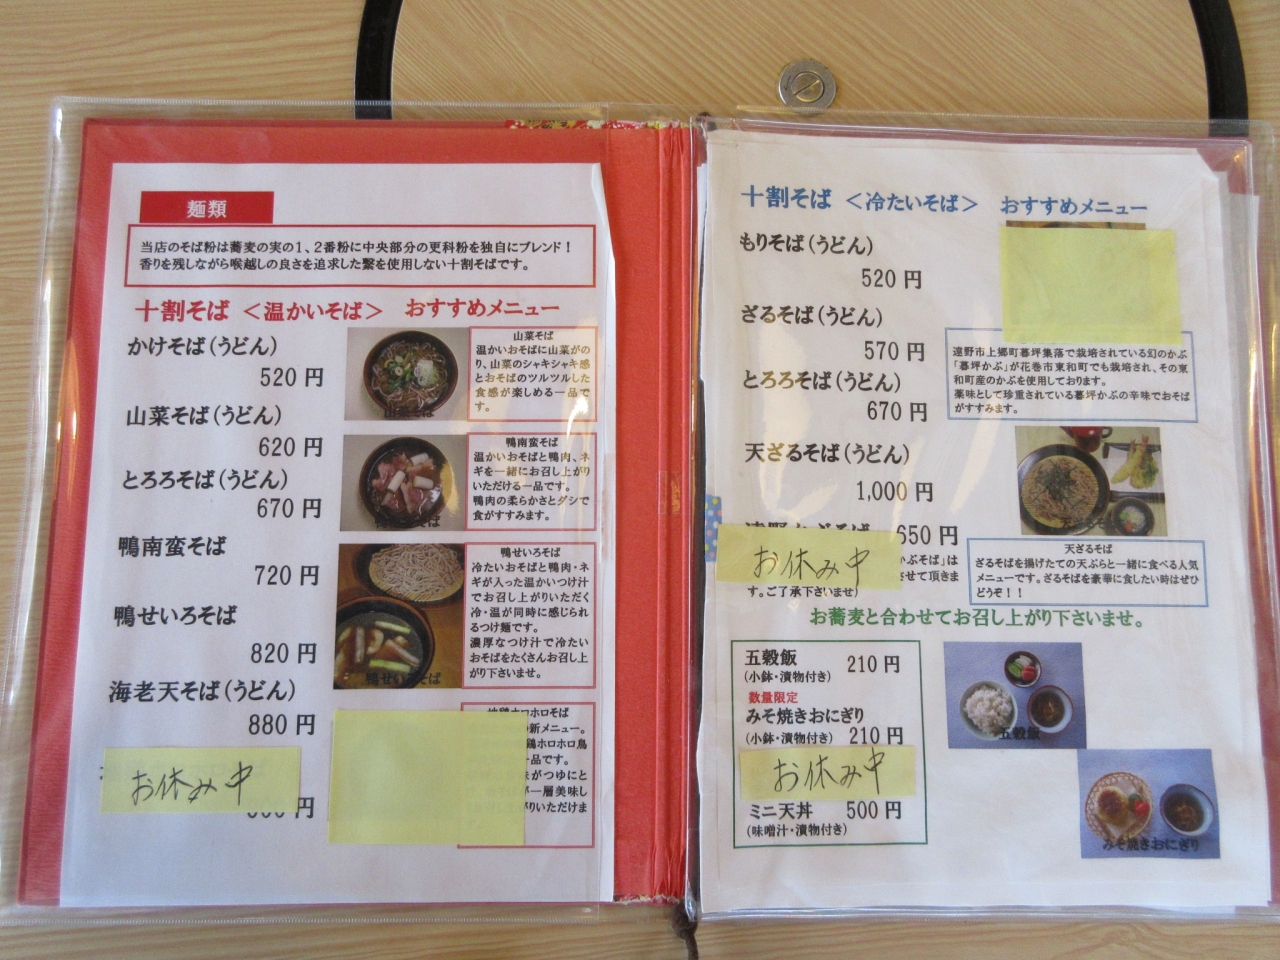 麺類
当店のそば粉は蕎麦の実の1、2番粉に中央部分の更科粉を独自にブレンド！
香りを残しながら喉越しの良さを追求した繋を使用しない十割そばです。
十割そば ＜温かいそば＞ おすすめメニュー
かけそば（うどん）
520 円
山菜そば（うどん）
620 円
とろろそば（うどん）
670 円
鴨南蛮そば
720 円
鴨せいろそば
820 円
海老天そば（うどん）
880 円
お休み中
円
山菜そば
山菜そば
温かいおそばに山菜がの
り、山菜のシャキシャキ感
とおそばのツルツルした
食感が楽しめる一品で
す。
鴨南蛮そば
温かいおそばと鴨肉、ネ
ギを一緒にお召し上がり
いただける一品です。
鴨肉の柔らかさとダシで
食がすすみます。
鴨せいろそば
鴨せいろそば
冷たいおそばと鴨肉・ネ
ギが入った温かいつけ汁
でお召し上がりいただく
冷・温が同時に感じられ
るつけ麺です。
濃厚なつけ汁で冷たい
おそばをたくさんお召し上
がり下さいませ。
ホロホロそば
新メニュー。
鶏ホロホロ鳥
一品です。
味がつゆにと
一層美味し
がりいただけま
十割そば ＜冷たいそば＞ おすすめメニュー
もりそば（うどん）
520 円
ざるそば（うどん）
570 円
とろろそば（うどん）
670 円
天ざるそば（うどん）
1,000 円
650 円
お休み中
かぶそば」は
させて頂きま
す。ご了承下さいませ）
遠野市上郷町暮坪集落で栽培されている幻のかぶ
「暮坪かぶ」が花巻市東和町でも栽培され、その東
和町産のかぶを使用しております。
薬味として珍重されている暮坪かぶの辛味でおそば
がすすみます。
天ざるそば
天ざるそば
ざるそばを揚げたての天ぷらと一緒に食べる人気
メニューです。ざるそばを豪華に食したい時はぜひ
どうぞ！！
お蕎麦と合わせてお召し上がり下さいませ。
五穀飯 210 円
（小鉢・漬物付き）
数量限定
みそ焼きおにぎり
（小鉢・漬物付き） 210 円
お休み中
ミニ天丼 500 円
（味噌汁・漬物付き）
五穀飯
みそ焼きおにぎり